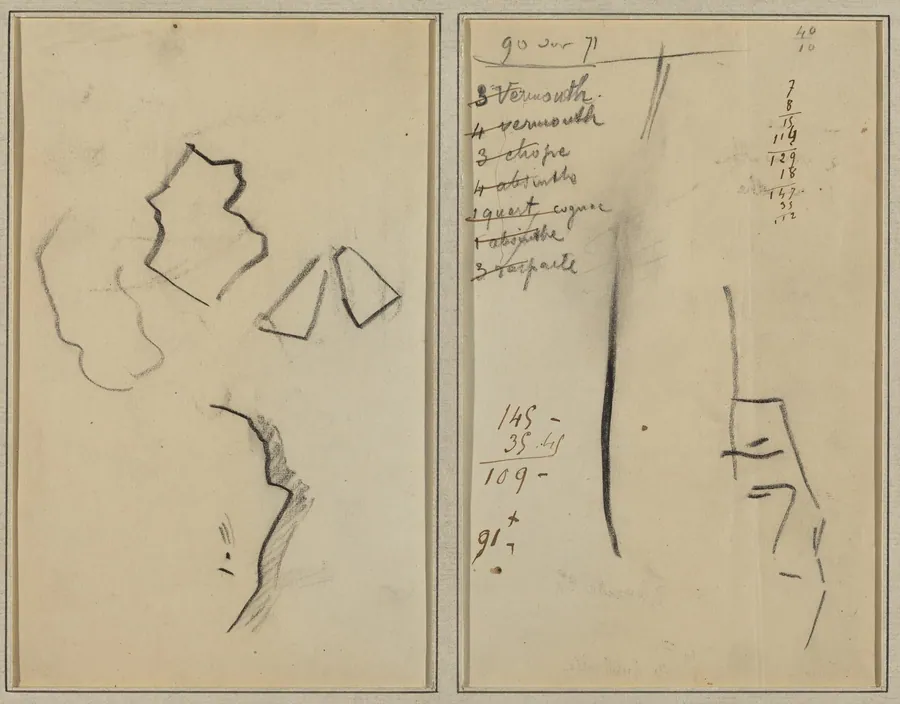 90 sur 71
3 Vermouth.
4 vermouth
3 chope
4 absinthe
1 quart cognac
1 absinthe
3
145 -
35.45
109 -
91 +
40
10
7
8
15
114
129
18
147
35
112